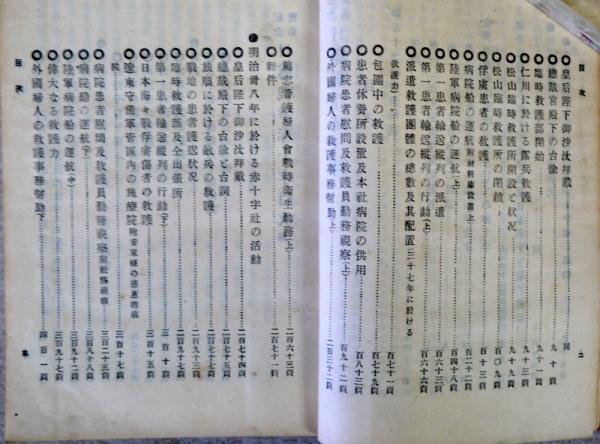 目次
◎皇后陛下御沙汰拜戴……同
◎總裁宮殿下の台諭……九十頁
◎臨時救護部開始……九十一頁
◎仁川に於ける露兵救護……九十三頁
◎松山臨時救護所開設と狀況……九十九頁
◎松山臨時救護所の閉鎖……百〇九頁
◎俘虜患者の救護……百十三頁
◎病院船の運航附材料庫設置上……百二十二頁
◎陸軍病院船の運航(上)……百四十八頁
◎第一患者輸送縱列の派遣……百五十四頁
◎第一患者輸送縱列の行動(上)……百五十六頁
◎派遣救護團體の總數及其配置(三十七年に於ける
救護力)……百六十六頁
◎包圍中の救護……百七十一頁
◎患者休養所設置及本社病院の供用……百七十九頁
◎病院患者慰問及救護員勤務視察(上)……百八十三頁
◎外國婦人の救護事務幇助上……百九十二頁
二百三十二頁
二
目次
◎篤志看護婦人會戰時衞生勤務(上)……二百六十三頁
◎雜件……二百七十一頁
●明治卅八年に於ける赤十字社の活動
◎皇后陛下御沙汰拜戴……二百七十四頁
◎總裁殿下の台諭と台調……二百七十五頁
◎旅順に於ける敵兵の救護……二百七十七頁
◎戰地の患者護送狀況……二百九十三頁
◎臨時救護部及全出張所……二百九十七頁
◎第一患者輸送縱列の行動(下)……三百十頁
◎日本海々戰俘虜傷者の救護……三百十五頁
◎遼東守備軍管區内の施療院附安東縣の慈惠的病
院……三百十七頁
◎病院患者慰問及救護員勤務視察……三百二十五頁
◎病院船の運航(下)……三百八十八頁
◎陸軍病院船の運航(中)……三百九十二頁
◎偉大なる救護力……三百九十七頁
◎外國婦人の救護事務幇助下……四百一頁